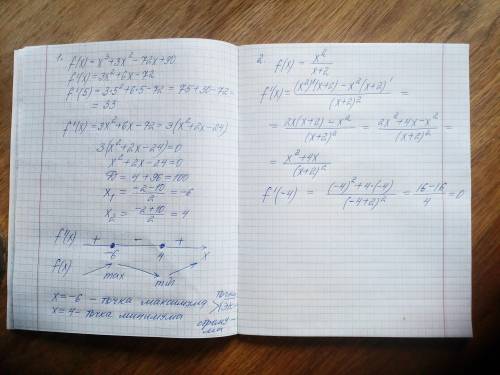 1. f'(x) = x³+3x²-72x+90
f'(x)=3x²+6x-72
f'(5)=3·5²+6·5-72=75+30-72=
= 33
f'(x)=3x²+6x-72=3(x²+2x-24)
3(x²+2x-24)=0
x²+2x-24=0
D = 4+96=100
x₁ = (-2-10)/2 = -6
x₂ = (-2+10)/2 = 4
f'(x) + - +
-6 4 x
f(x) max min
x=-6 - точка максимума
x=4- точка минимума
точки
экстрему-
ма
2. f(x) = x²/(x+2)
f'(x) = ((x²)'(x+2)-x²(x+2)')/(x+2)² =
= (2x(x+2)-x²)/(x+2)² = (2x²+4x-x²)/(x+2)² =
= (x²+4x)/(x+2)²
f'(-4) = ((-4)²+4·(-4))/(-4+2)² = (16-16)/4 = 0